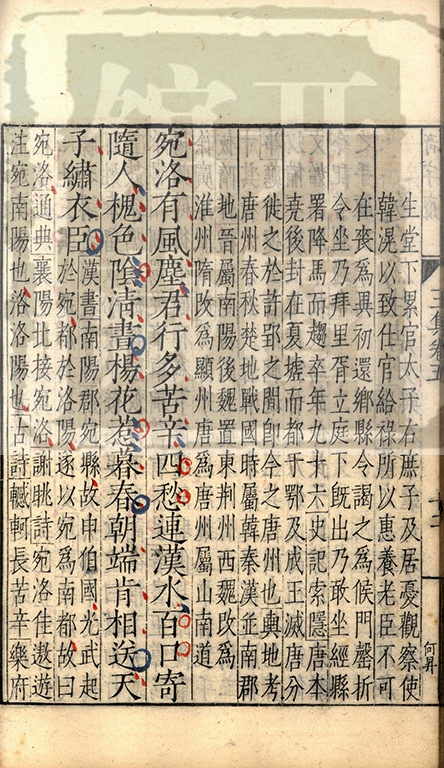 生堂下累官太子右庶子及居憂觀察使
韓滉以致仕官給祿所以惠養老臣不可
在喪爲異初還鄉縣令謁之爲候門罄折
令坐乃拜里胥立庭下旣出乃敢坐經縣
署降馬而趨卒年九十六史記索隱唐本
堯後封在夏墟而都于鄂及成王滅唐分
徙之於許郢之間卽今之唐州也輿地考
唐州春秋楚地戰國時屬韓秦漢並南郡
地晉屬南陽後魏置東荆州西魏改爲
淮州隋改爲顯州唐爲唐州屬山南道
宛洛有風塵君行多苦辛四愁連漢水百口寄
隨人槐色陰清晝楊花惹暮春朝端肯相送天
子繡衣臣
漢書南陽郡宛縣故申伯國光武起
於宛都於洛陽遂以宛爲南都故曰
宛洛通典襄陽北接宛洛謝眺詩宛洛佳遨遊
注宛南陽也洛洛陽也古詩轗軻長苦辛樂府
何昇